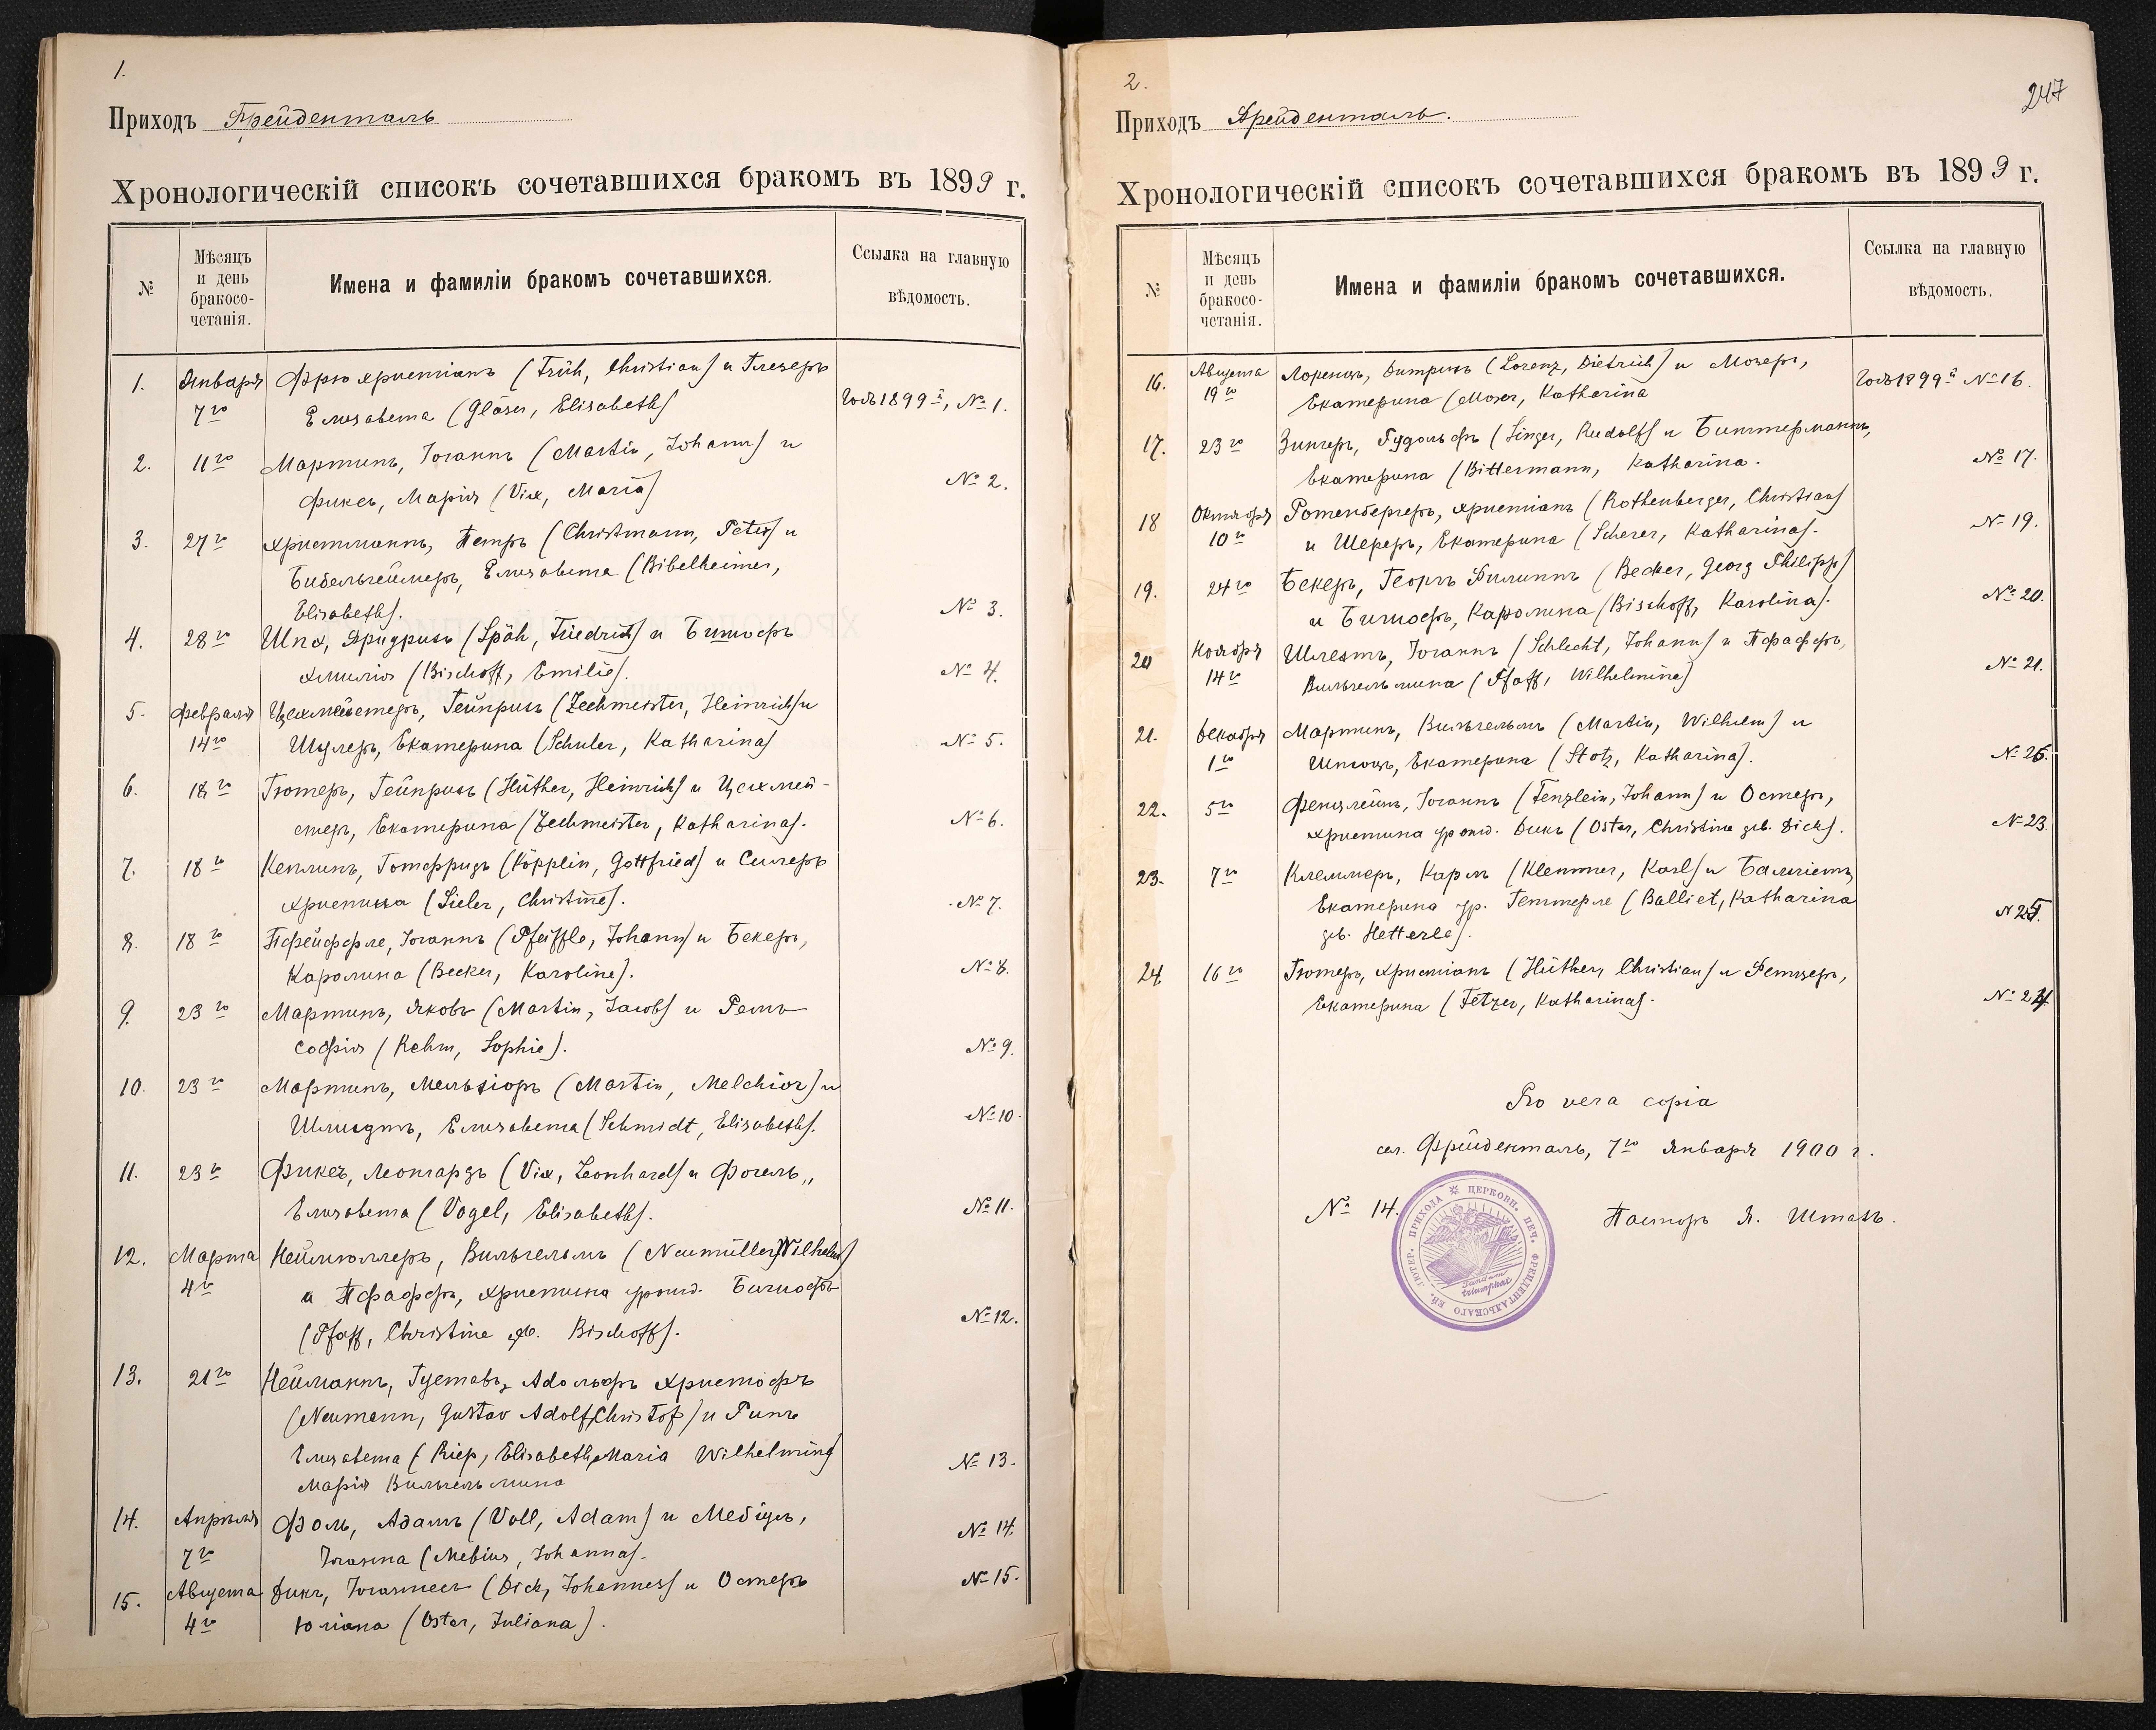 1.
Приходъ Фрейденталь
Хронологическій списокъ сочетавшихся бракомъ въ 1899 г.
№
Мѣсяцъ и день бракосо- четанія.
Имена и фамиліи бракомъ сочетавшихся.
Ссылка на главную вѣдомость.
1. Января Фрю Христіанъ (Früh, Christian) и Глезеръ
7го Елизавета (Gläser, Elisabeth) Годъ 1899й, № 1.
2. 11го Мартинъ, Іоганнъ (Martin, Johann) и
Фиксъ, Марія (Vix, Maria) № 2.
3. 27го Христманнъ, Петръ (Christmann, Peter) и
Бибельгеймеръ, Елизавета (Bibelheimer,
Elisabeth). № 3.
4. 28го Шпэ, Фридрихъ (Späh, Friedrich) и Бишофъ
Эмилія (Bischoff, Emilie). № 4.
5. Февраля Цехмейстеръ, Гейнрихъ (Zechmeister, Heinrich) и
14го Шулеръ, Екатерина (Schuler, Katharina) № 5.
6. 18го Гютеръ, Гейнрихъ (Hüther, Heinrich) и Цехмей-
стеръ, Екатерина (Zechmeister, Katharina). № 6.
7. 18го Кеплинъ, Готфридъ (Köpplin, Gottfried) и Силеръ
Христина (Sieler, Christine). № 7.
8. 18го Пфейффле, Іоганнъ (Pfeiffle, Johann) и Бекеръ,
Каролина (Becker, Karoline). № 8.
9. 23го Мартинъ, Яковъ (Martin, Jacob) и Ремъ
Софія (Rehm, Sophie). № 9.
10. 23го Мартинъ, Мельхіоръ (Martin, Melchior) и
Шмидтъ, Елизавета (Schmidt, Elisabeth). № 10.
11. 23го Фиксъ, Леонгардъ (Vix, Leonhard) и Фогель,
Елизавета (Vogel, Elisabeth). № 11.
12. Марта Неймюллеръ, Вильгельмъ (Neumüller, Wilhelm)
4го и Пфаффъ, Христина урожд. Бишофъ
(Pfaff, Christine geb. Bischoff). № 12.
13. 21го Нейманнъ, Густавъ, Адольфъ Христофъ
(Neumann, Gustav Adolf, Christof) и Рипъ
Елизавета (Riep, Elisabeth, Maria Wilhelmina) № 13.
Марія Вильгельмина
14. Апрѣля Фолъ, Адамъ (Voll, Adam) и Мебіусъ, № 14.
7го Іоганна (Mebius, Johanna).
15. Августа Дикъ, Іоганнесъ (Dick, Johannes) и Остеръ № 15.
4го Юліана (Oster, Juliana).
2.
247
Приходъ Фрейденталь.
Хронологическій списокъ сочетавшихся бракомъ въ 1899 г.
№
Мѣсяцъ и день бракосо- четанія.
Имена и фамиліи бракомъ сочетавшихся.
Ссылка на главную вѣдомость.
16. Августа Лоренцъ, Дитрихъ (Lorenz, Dietrich) и Мозеръ,
19го Екатерина (Moser, Katharina Годъ 1899й № 16.
17. 23го Зингеръ, Рудольфъ (Singer, Rudolf) и Биттерманнъ,
Екатерина (Bittermann, Katharina. № 17.
18 Октября Ротенбергеръ, Христіанъ (Rothenberger, Christian)
10го и Шереръ, Екатерина (Scherer, Katharina). № 19.
19. 24го Бекеръ, Георгъ Филиппъ (Becker, Georg Philipp)
и Бишофъ, Каролина (Bischoff, Karolina). № 20.
20 Ноября Шлехтъ, Іоганнъ (Schlecht, Johann) и Пфаффъ,
14го Вильгельмина (Pfaff, Wilhelmine) № 21.
21. Декабря Мартинъ, Вильгельмъ (Martin, Wilhelm) и
1го Штоцъ, Екатерина (Stotz, Katharina).
22. 5го Фенцлейнъ, Іоганнъ (Fenzlein, Johann) и Остеръ,
Христина урожд. Дикъ (Oster, Christine geb. Dick). № 23.
23. 7го Клеммеръ, Карлъ (Klemmer, Karl) и Балліетъ,
Екатерина ур. Геттерле (Balliet, Katharina
geb. Hetterle). № 25.
24. 16го Гютеръ, Христіанъ (Hüther, Christian) и Фетцеръ,
Екатерина (Fetzer, Katharina). № 24.
Pro vera copia
сел. Фрейденталь, 7го Января 1900 г.
№ 14.
Пасторъ Я. Штахъ.
ЦЕРКОВН. ПЕЧ. ФРЕЙДЕНТАЛЬСКАГО ЕВ. ЛЮТЕР. ПРИХОДА